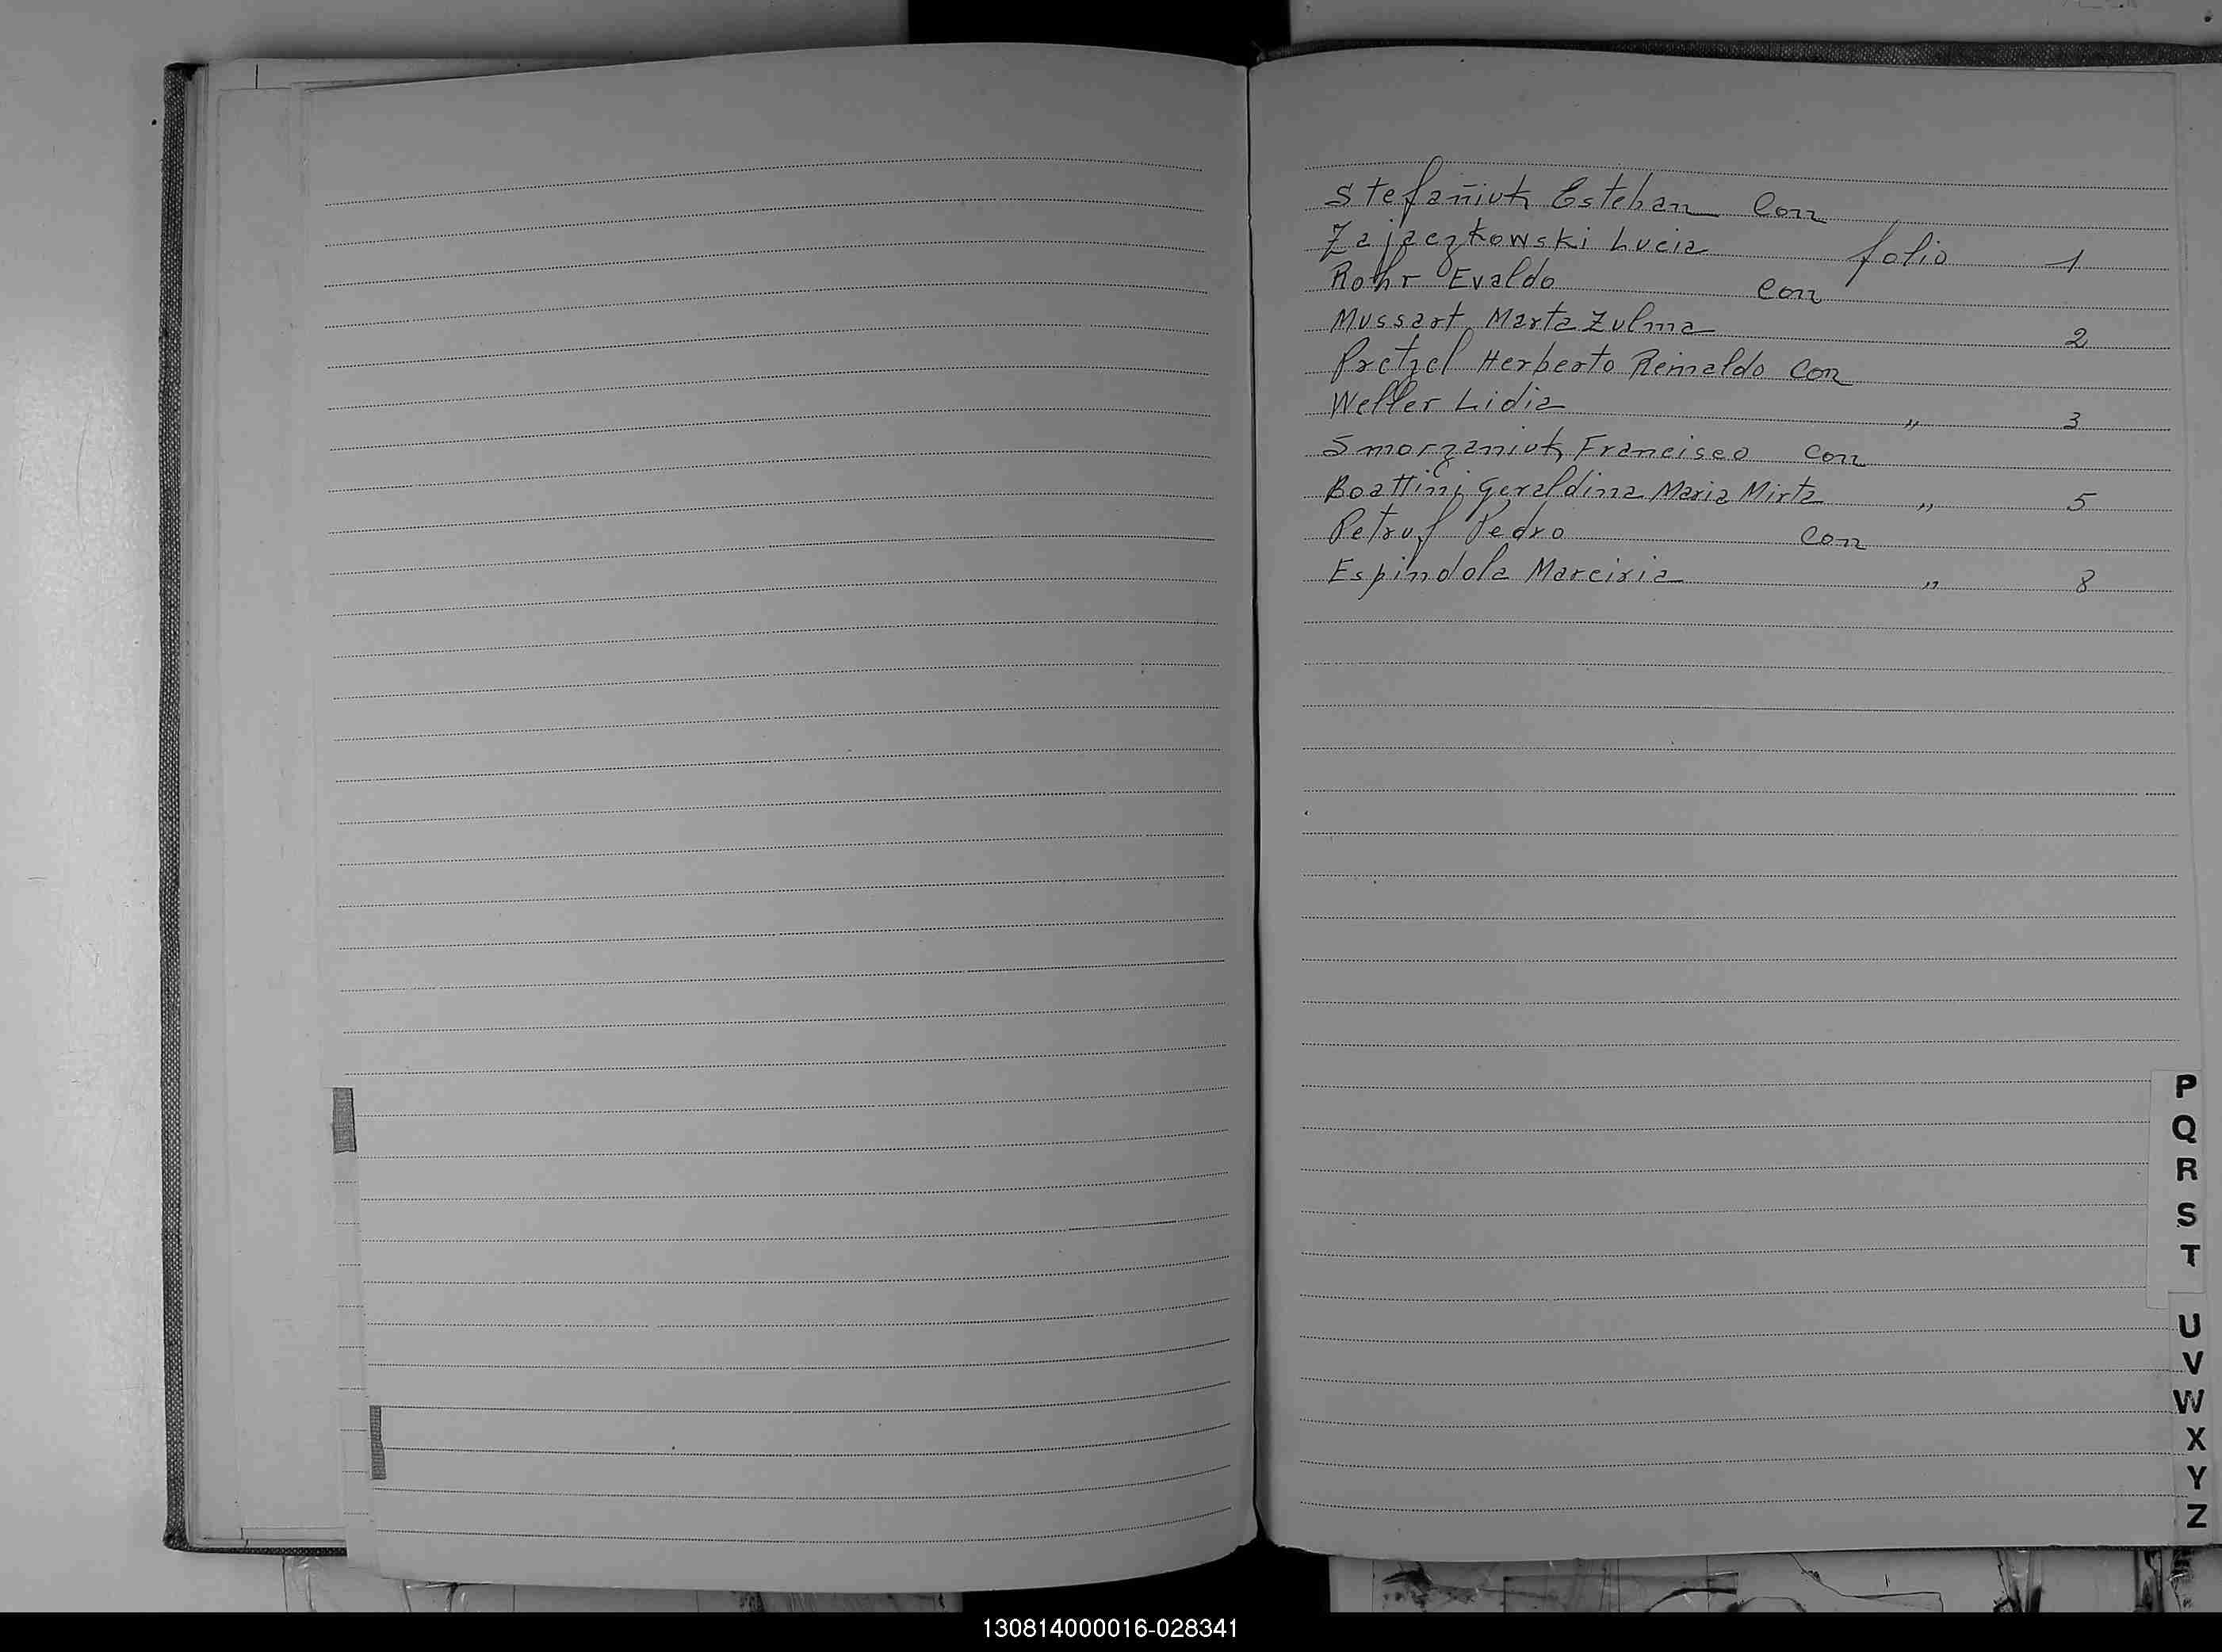 Stefañiuk Esteban Con
Zajaczkowski Lucia folio 1
Rohr Evaldo Con
Mussart Marta Zulma 2
Pretzel Herberto Reinaldo Con
Weller Lidia " 3
Smorzaniuk Francisco Con
Boattini Geraldina Maria Mirta " 5
Petruf Pedro Con
Espindola Marciria " 8
P
Q
R
S
T
U
V
W
X
Y
Z
130814000016-028341